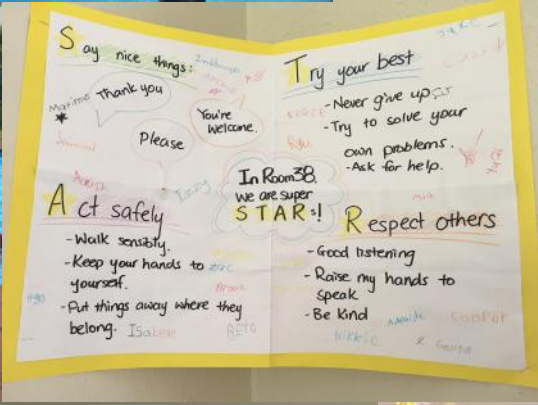 Say nice things:
Maximo
Thank you
You're
Welcome.
Please
Izzy
Try your best
- Never give up
- Try to solve your
own problems.
- Ask for help.
In Room 38,
we are super
STARs!
Act safely
- Walk sensibly.
- Keep your hands to
yourself.
- Put things away where they
belong.
Isabelle
Respect others
- Good listening
- Raise my hands to
speak
- Be kind
Nikkie
Cooper